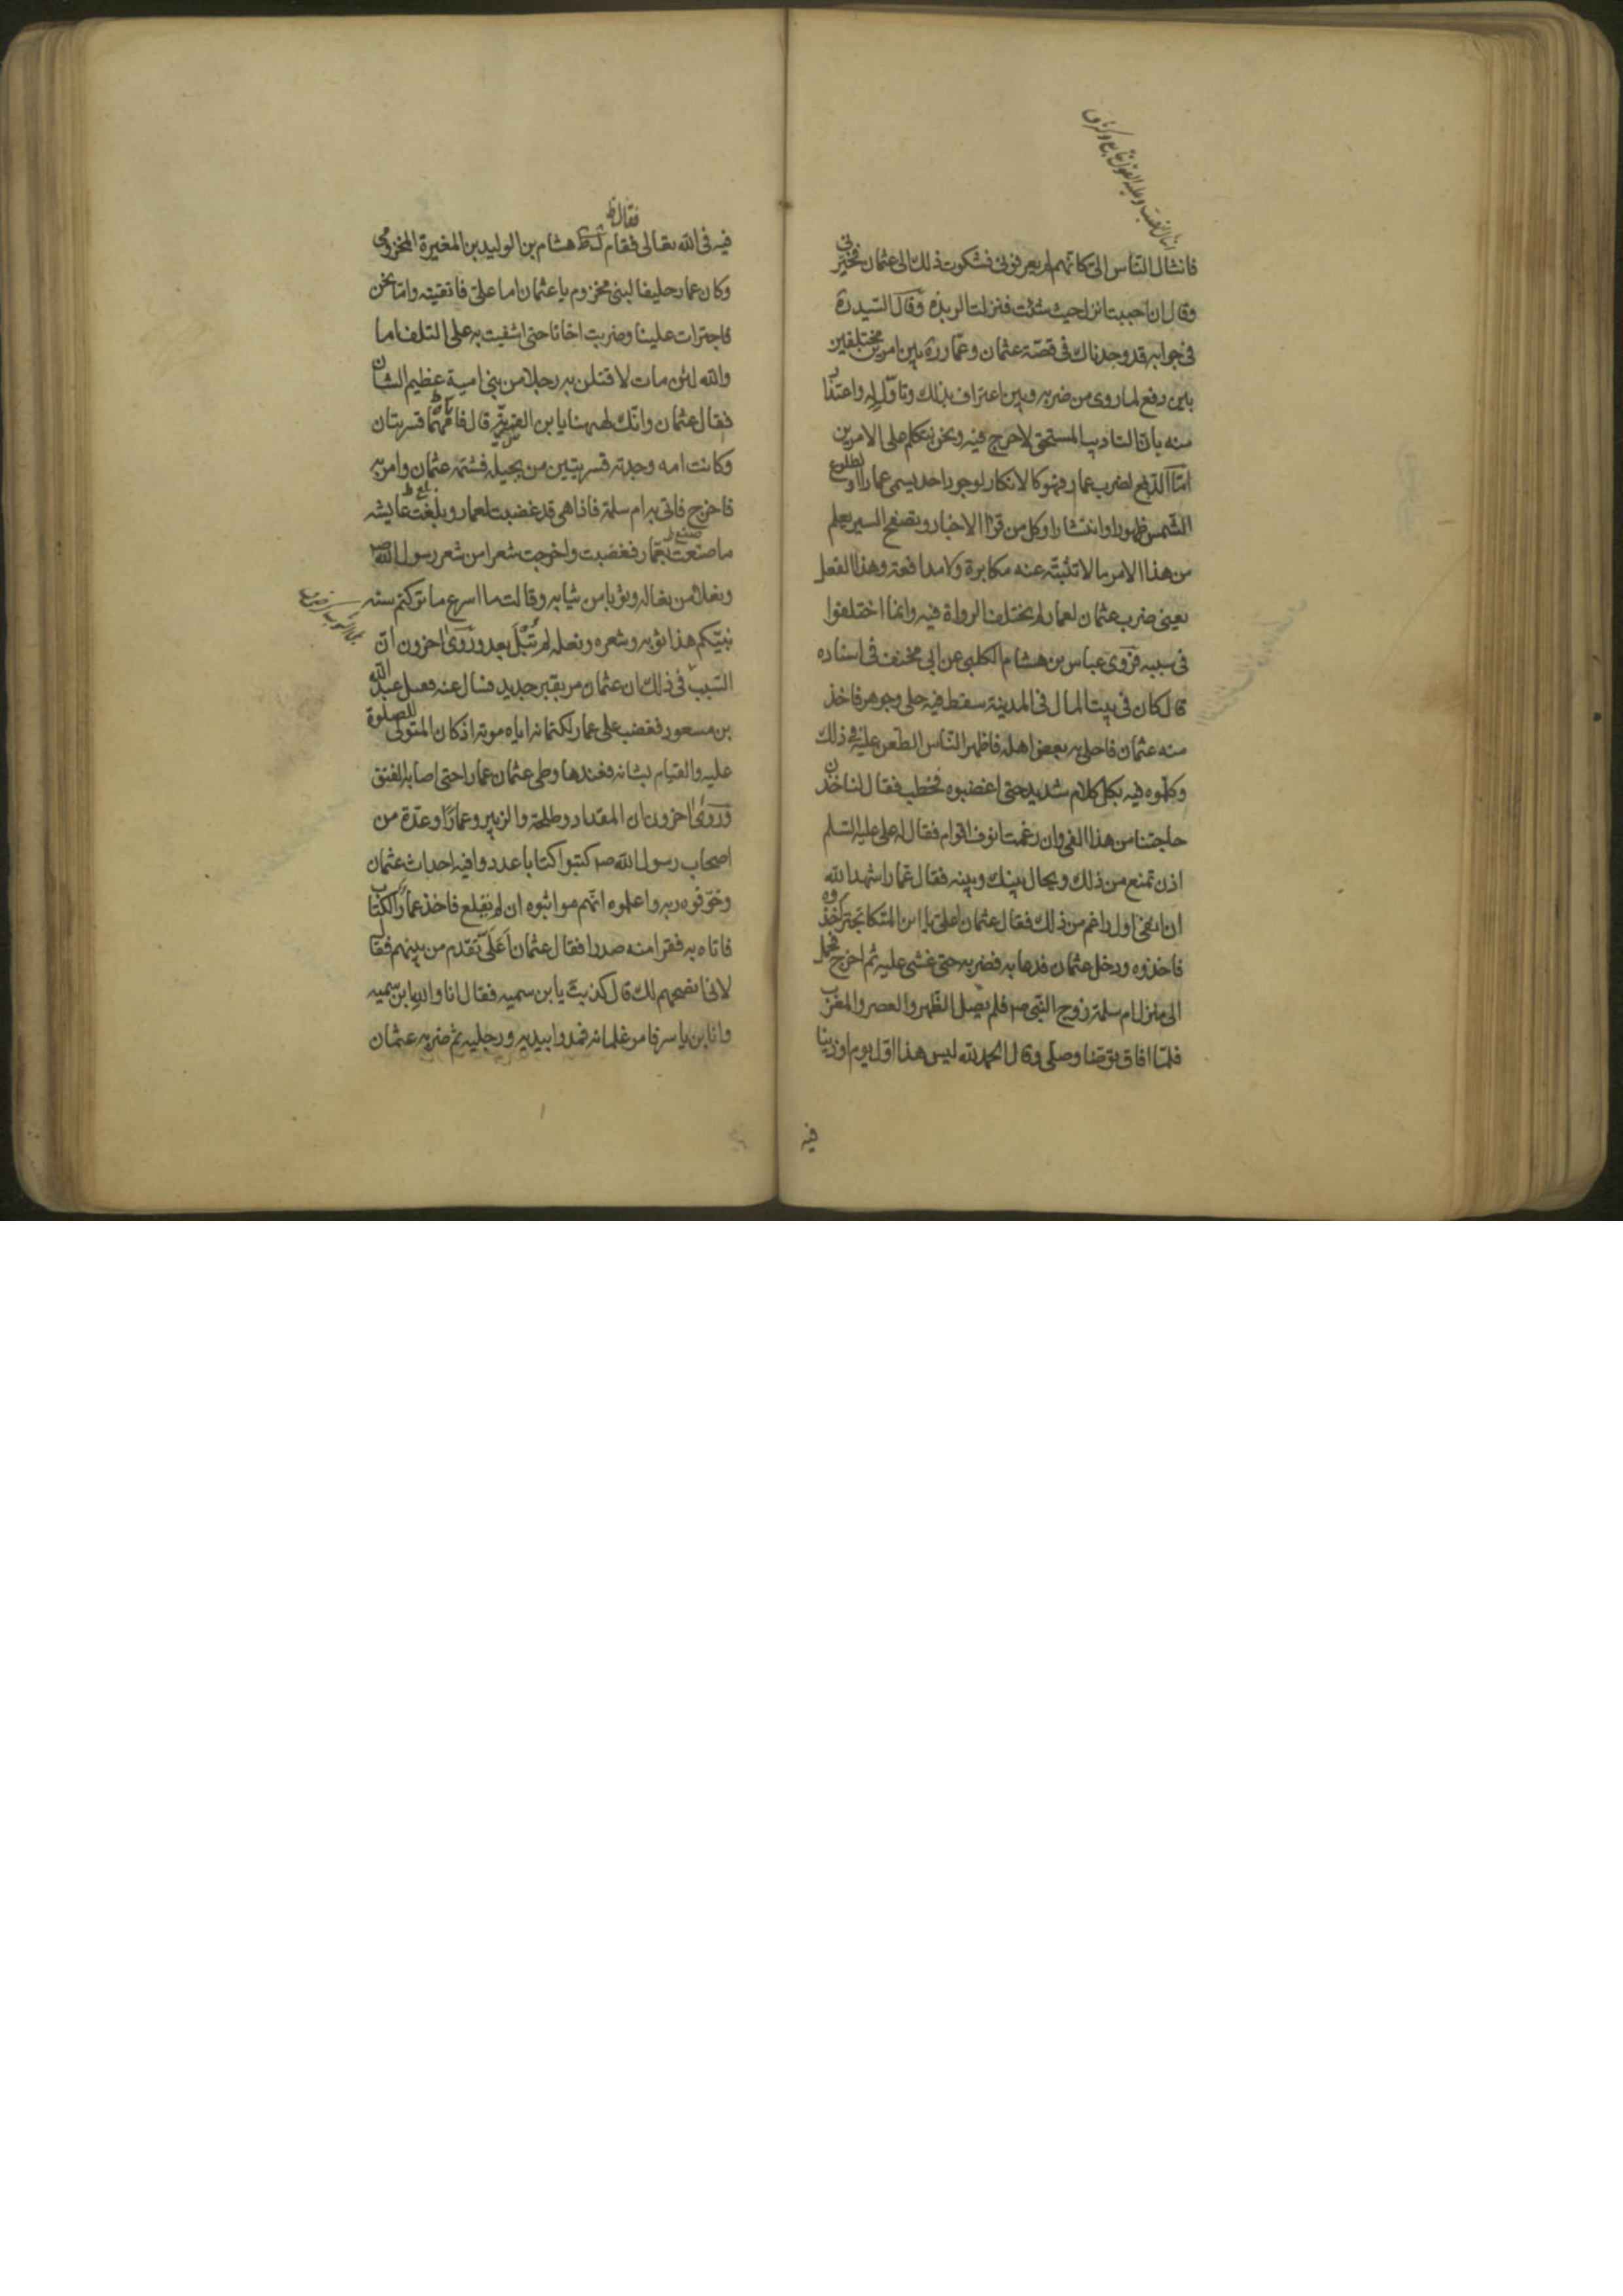 فانثال الناس الی کانهم لم یعرفونی فشکوت ذلک الی عثمان فخیرنی
وقال ان احببت انزل حیث شئت فنزلت الربذه وقال السید ره
فی جوابه قد وجدناک فی قصة عثمان وعمار ره بین امرین مختلفین
بین دفع لما روی من ضربه وبین اعتراف بذلک وتاول له واعتذار
منه بان التادیب المستحق لا حرج فیه ونحن نتکلم علی الامرین
اما الدفع لضرب عمار فهو کالانکار لوجود احد یسمی عمارا او لطلوع
الشمس ظهورا وانتشارا وکل من قرا الاخبار وتصفح السیر یعلم
من هذا الامر ما لا تثبته عنه مکابرة ولا مدافعة وهذا الفعل
یعنی ضرب عثمان لعمار لم یختلف الرواة فیه وانما اختلفوا
فی سببه فروی عباس بن هشام الکلبی عن ابی مخنف فی اسناده
قال کان فی بیت المال فی المدینة سفط فیه حلی وجوهر فاخذ
منه عثمان فاحلی به بعض اهله فاظهر الناس الطعن علیه فی ذلک
وکلموه فیه بکل کلام شدید حتی اغضبوه فخطب فقال لناخذن
حاجتنا من هذا الفی وان رغمت انوف اقوام فقال له علی علیه السلم
اذن تمنع من ذلک ویحال بینک وبینه فقال عمار اشهد الله
ان انفی اول راغم من ذلک فقال عثمان اعلی یا ابن المتکا تجتری خذوه
فاخذوه ودخل عثمان فدعا به فضربه حتی غشی علیه ثم اخرج فحمل
الی منزل ام سلمة زوج النبی ص فلم یصل الظهر والعصر والمغرب
فلما افاق توضا وصلی وقال الحمد لله لیس هذا اول یوم اوذینا
فیه
فیه فی الله تعالی فقام فقال ظ هشام بن الولید بن المغیرة المخزومی
وکان عمار حلیفا لبنی مخزوم یا عثمان اما علی فاتقیته واما نحن
فاجترات علینا وضربت اخانا حتی اشفیت به علی التلف اما
والله لئن مات لاقتلن به رجلا من بنی امیة عظیم الشان
فقال عثمان وانک لههنا یا بن القسریة قال فانهما قسریتان
وکانت امه وجدته قسریتین من بجیله فشتمه عثمان وامر به
فاخرج فاتی به ام سلمة فاذا هی قد غضبت لعمار وبلغت عایشه
ما صنعت بعمار فغضبت واخرجت شعرا من شعر رسول الله ص
ونعلا من نعاله وثوبا من ثیابه وقالت ما اسرع ما ترکتم سنة
نبیکم هذا ثوبه وشعره ونعله لم تبل بعد وروی اخرون ان
السبب فی ذلک ان عثمان مر بقبر جدید فسال عنه فقیل عبد الله
بن مسعود فغضب علی عمار لکتمانه ایاه موته اذ کان المتولی للصلوة
علیه والقیام بشانه فعندها وطی عثمان عمارا حتی اصابه الفتق
وروی اخرون ان المقداد وطلحة والزبیر وعمارا وعدة من
اصحاب رسول الله ص کتبوا کتابا عددوا فیه احداث عثمان
وخوفوه ربه واعلموه انهم مواثبوه ان لم یقلع فاخذ عمار الکتاب
فاتاه به فقرا منه صدرا فقال عثمان اعلی تقدم من بینهم فقال
لانی انصحهم لک قال کذبت یا بن سمیه فقال انا والله ابن سمیه
وانا بن یاسر فامر غلمانه فمدوا بیدیه ورجلیه ثم ضربه عثمان